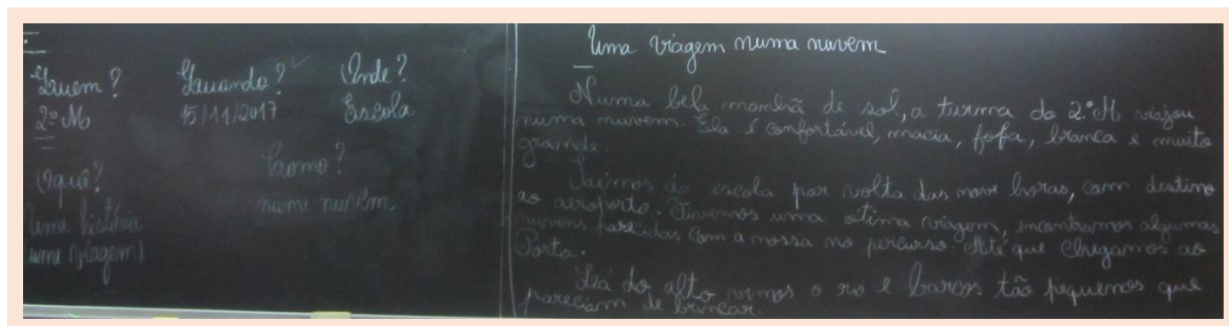 Quem? Quando? Onde?
2º M 15/11/2017 Escola
O quê? Como?
Uma história numa nuvem.
uma viagem)
Uma viagem numa nuvem
Numa bela manhã de sol, a turma do 2.º M viajou
numa nuvem. Ela é confortável, macia, fofa, branca e muito
grande.
Saímos da escola por volta das nove horas, com destino
ao aeroporto. Tivemos uma ótima viagem, encontramos algumas
nuvens parecidas com a nossa no percurso. Até que chegamos ao
Porto.
Lá do alto vimos o rio e barcos tão pequenos que
pareciam de brincar.